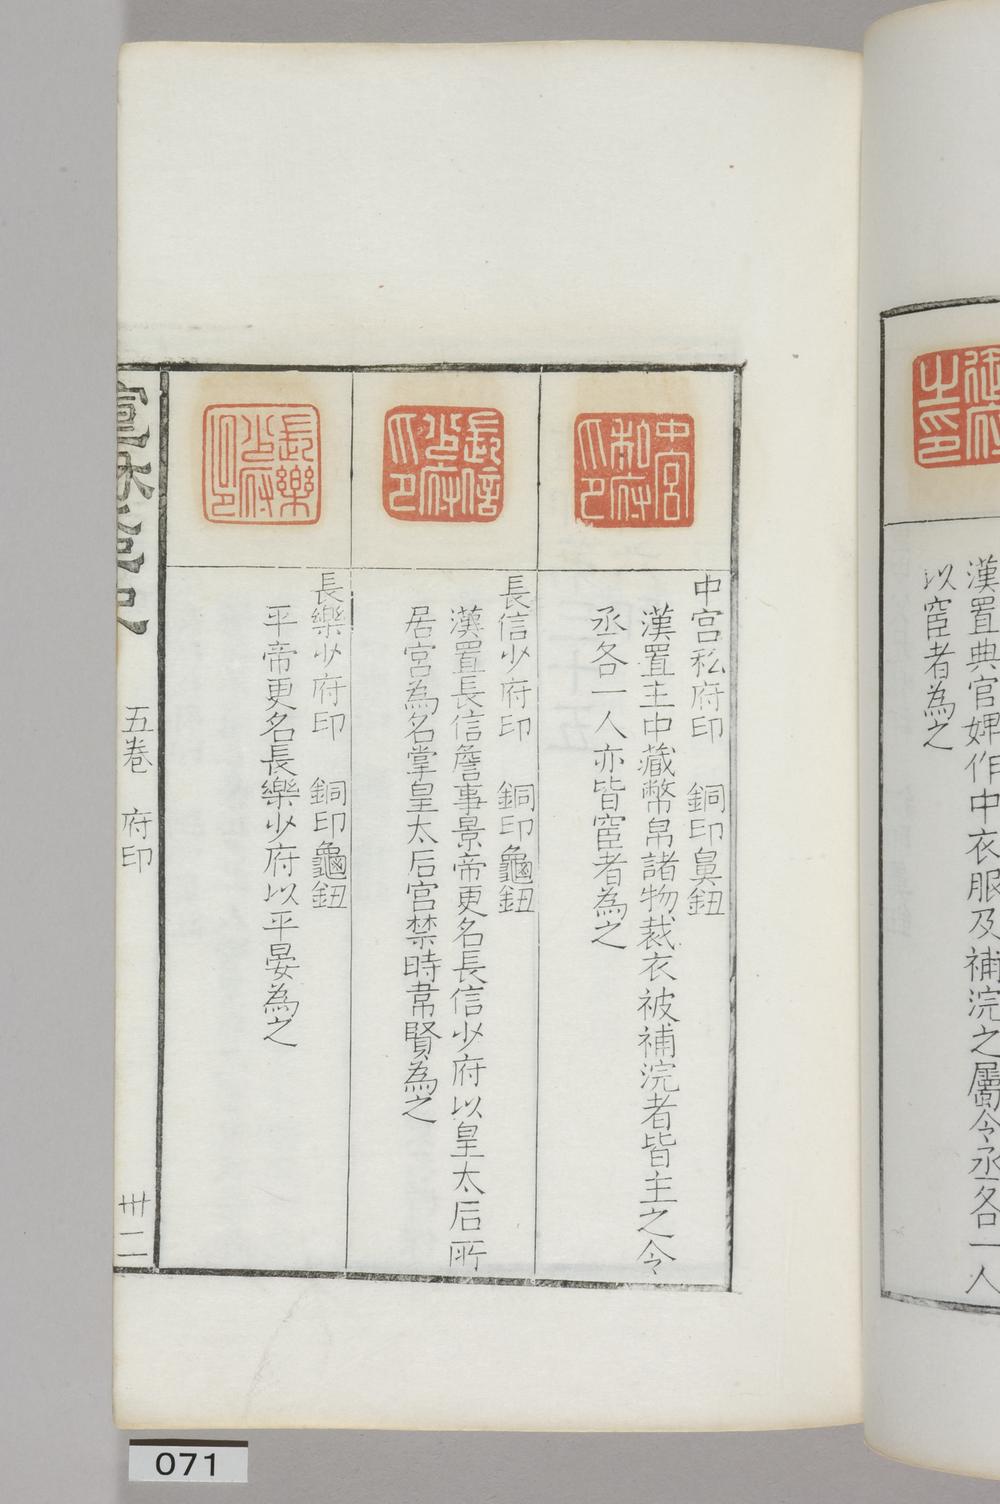 漢置典官婢作中衣服及補浣之屬令丞各一人
以宦者為之
中宮私府印
中宮私府印　銅印鼻鈕
漢置主中藏幣帛諸物裁衣被補浣者皆主之令
丞各一人亦皆宦者為之
長信少府印
長信少府印　銅印龜鈕
漢置長信詹事景帝更名長信少府以皇太后所
居宮為名掌皇太后宮禁時韋賢為之
長樂少府印
長樂少府印　銅印龜鈕
平帝更名長樂少府以平晏為之
五卷　府印　卅二
071